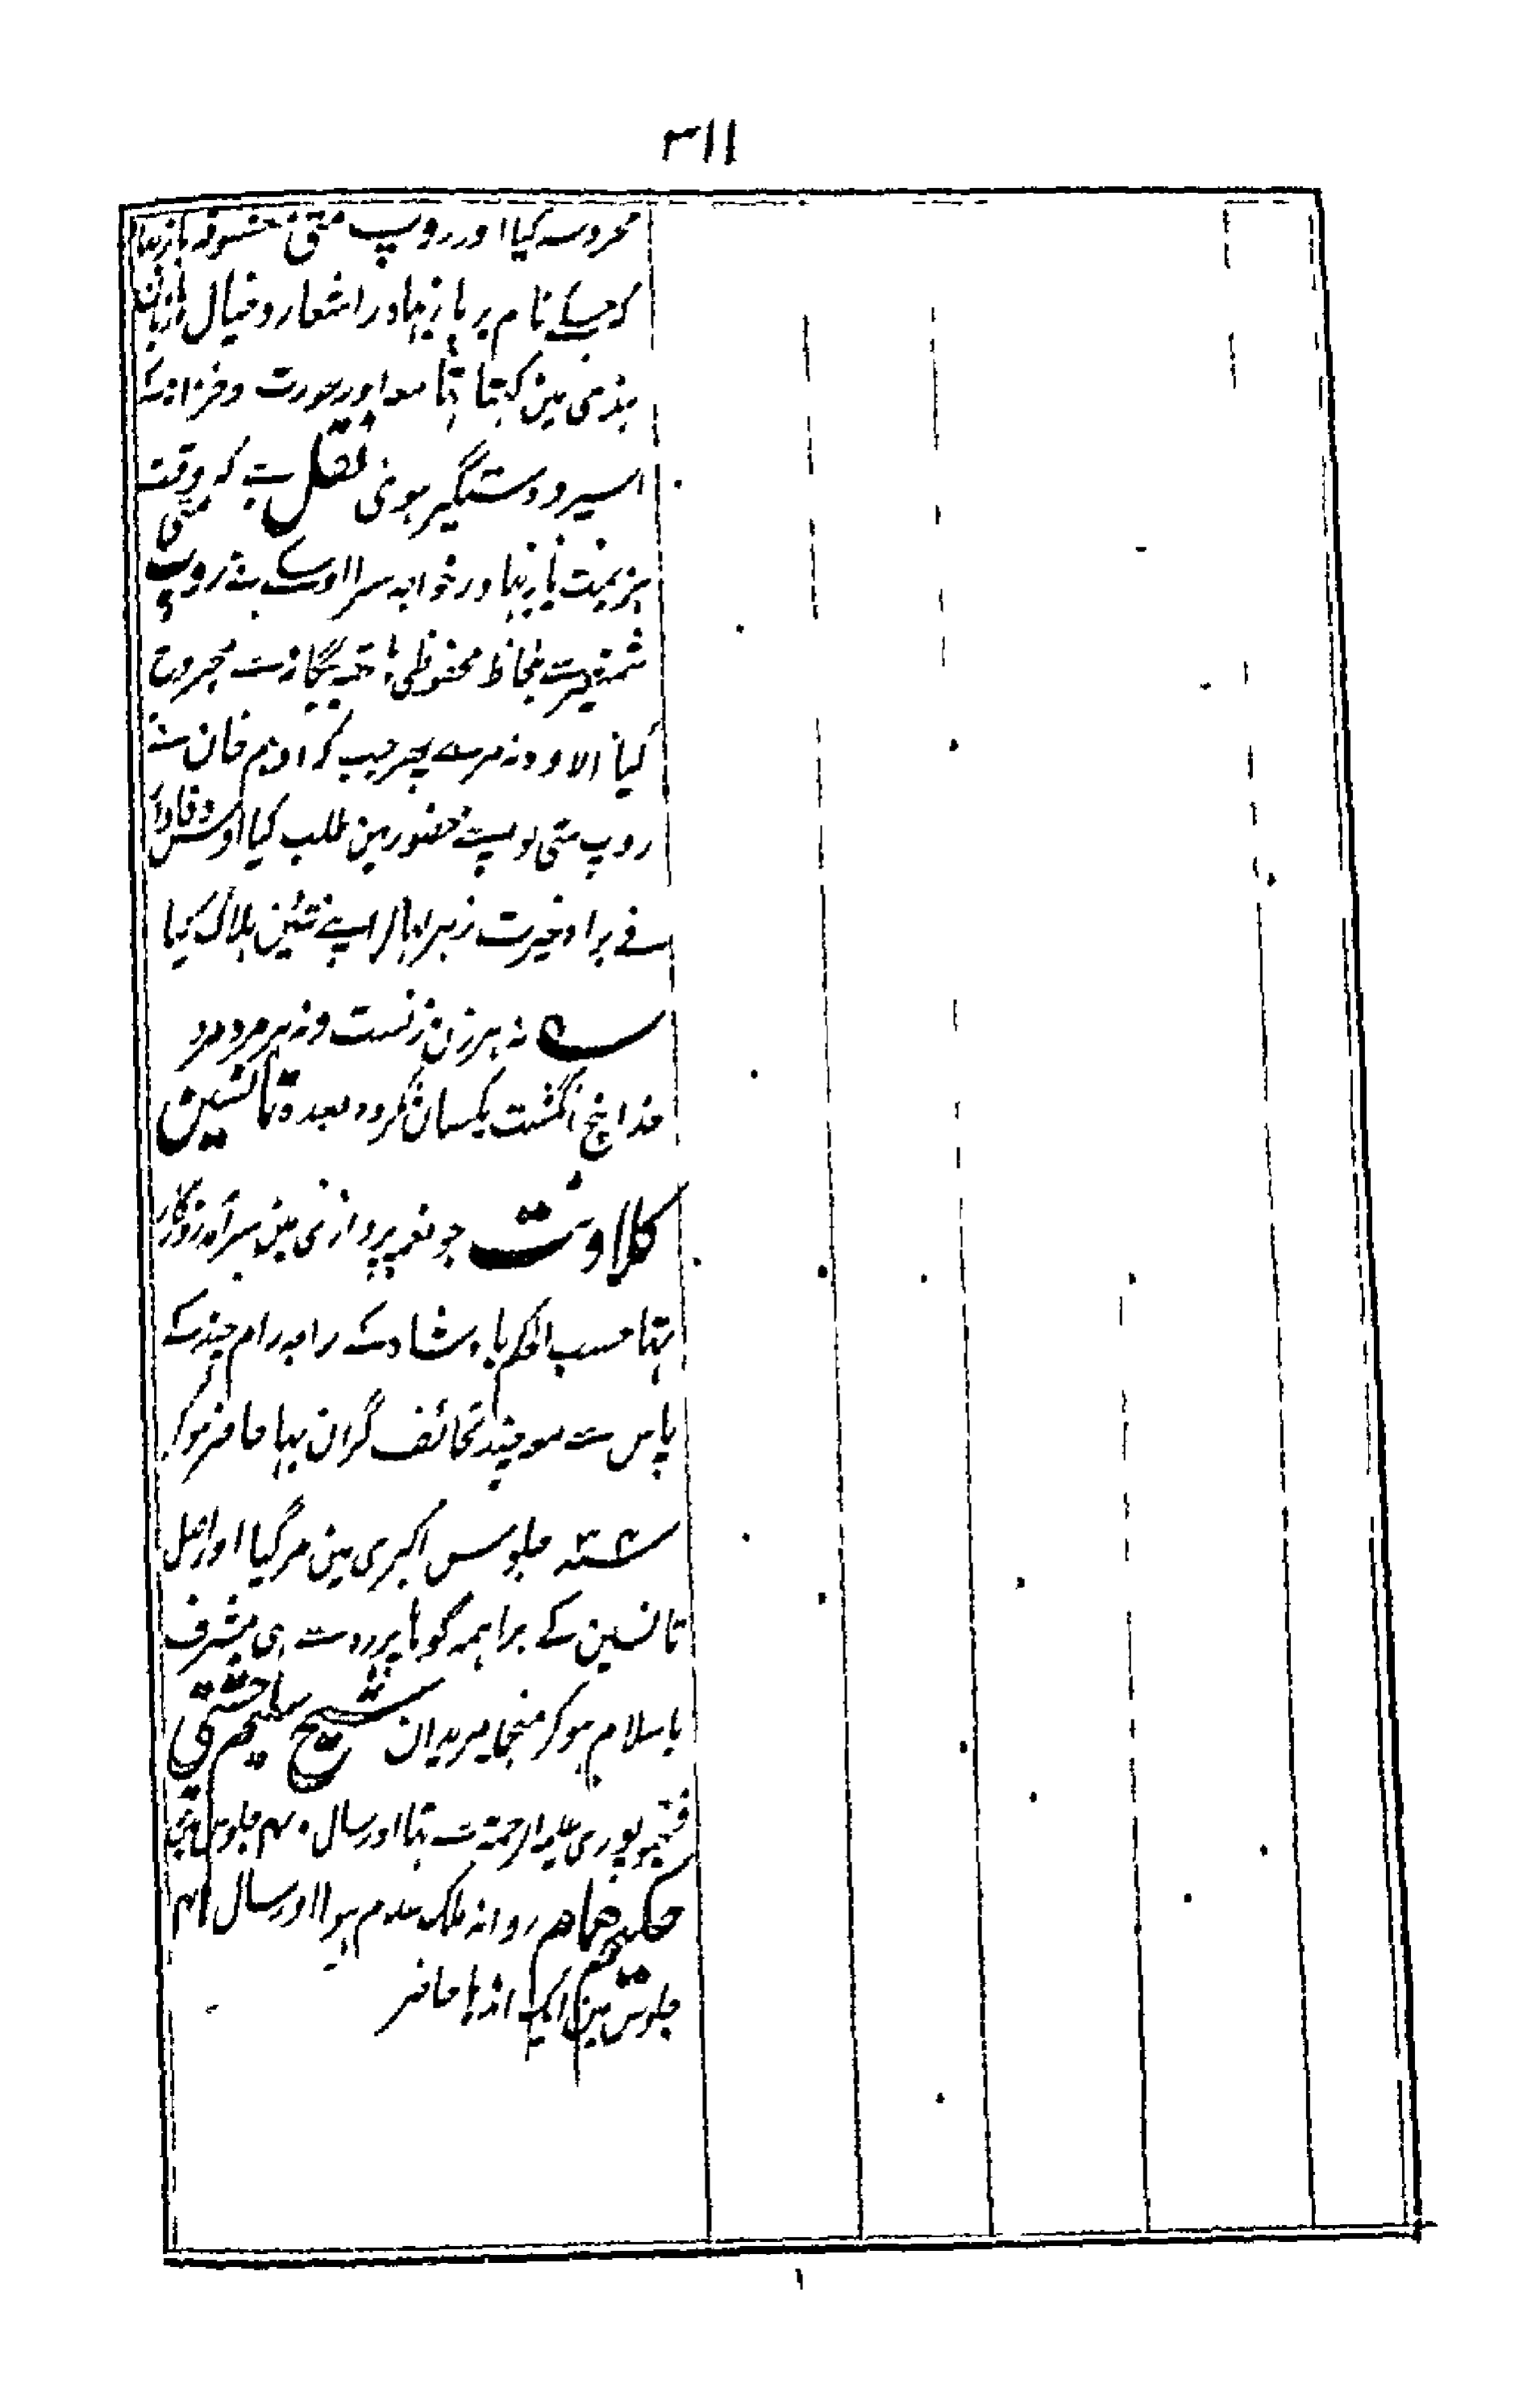 ۳۱۱
محروسہ کیا اور روپ متی معشوقہ بازبہادر
کہ جسکے نام پر بازبہادر اشعار و خیال زبان
ہندی مین کہتا تہا معہ اور عورت و خزانہ کے
اسیر و دستگیر ہوئی نقل ہے کہ وقت
ہزیمت بازبہادر خواجہ سرا اوسکے نے روپ متی
شمشیر سے بلحاظ محفوظی ہاتھ بیگانہ سے مجروح
کیا الا وہ نہ مرے پھر جب کہ ادہم خان نے
روپ متی کو اپنے حضور مین طلب کیا اوس وفادار
نے براہ غیرت زہر کہا کر اپنے تئین ہلاک کیا
نہ ہر زن زنست و نہ ہر مرد مرد
خدا پنج انگشت یکسان نکرد و بعدہ تانسین
کلاونت جو نغمہ پردازی مین سرآمد روزگار
تہا حسب الحکم بادشاہ کے راجہ رام چند کے
پاس سے معہ چند تحائف گران بہا حاضر ہوکر
جلوس اکبری مین مر گیا اور اصل
تانسین کے براہمہ گوہا سے ہی مشرف
باسلام ہوکر منجملہ مریدان شیخ سلیم چشتی
فتحپوری علیہ الرحمۃ سے تہا اور سال ۴۰ جلوس مین
حکیم ہمام روانہ ملک عدم ہوا اور سال ۴۱
جلوس مین ایک اندہا حافظ